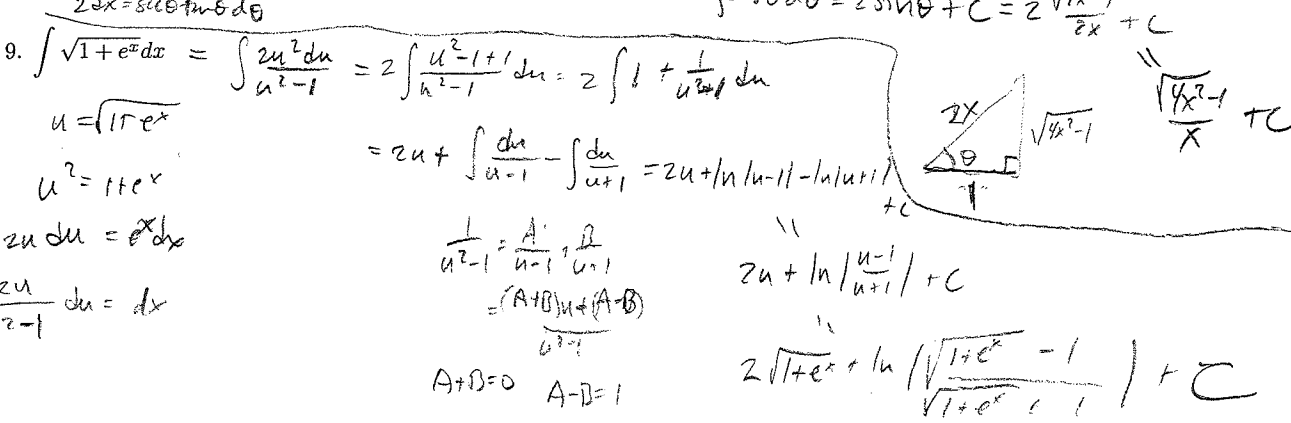 2dx = secθ tanθ dθ
= 2 sinθ + C = 2 √ / 2x + C
9. ∫ √(1+e^x) dx = ∫ 2u² du / (u²-1) = 2 ∫ (u²-1+1)/(u²-1) du = 2 ∫ 1 + 1/(u²-1) du
u = √(1+e^x)
u² = 1+e^x
2u du = e^x dx
2u / 2-1 du = dx
= 2u + ∫ du/(u-1) - ∫ du/(u+1) = 2u + ln|u-1| - ln|u+1| + C
1/(u²-1) = A/(u-1) + B/(u+1)
= ((A+B)u + (A-B)) / (u²-1)
A+B=0 A-B=1
"
2u + ln|(u-1)/(u+1)| + C
"
2√(1+e^x) + ln|(√(1+e^x) - 1)/(√(1+e^x) + 1)| + C
2x √(4x²-1)
θ
1
"
√(4x²-1) / x + C